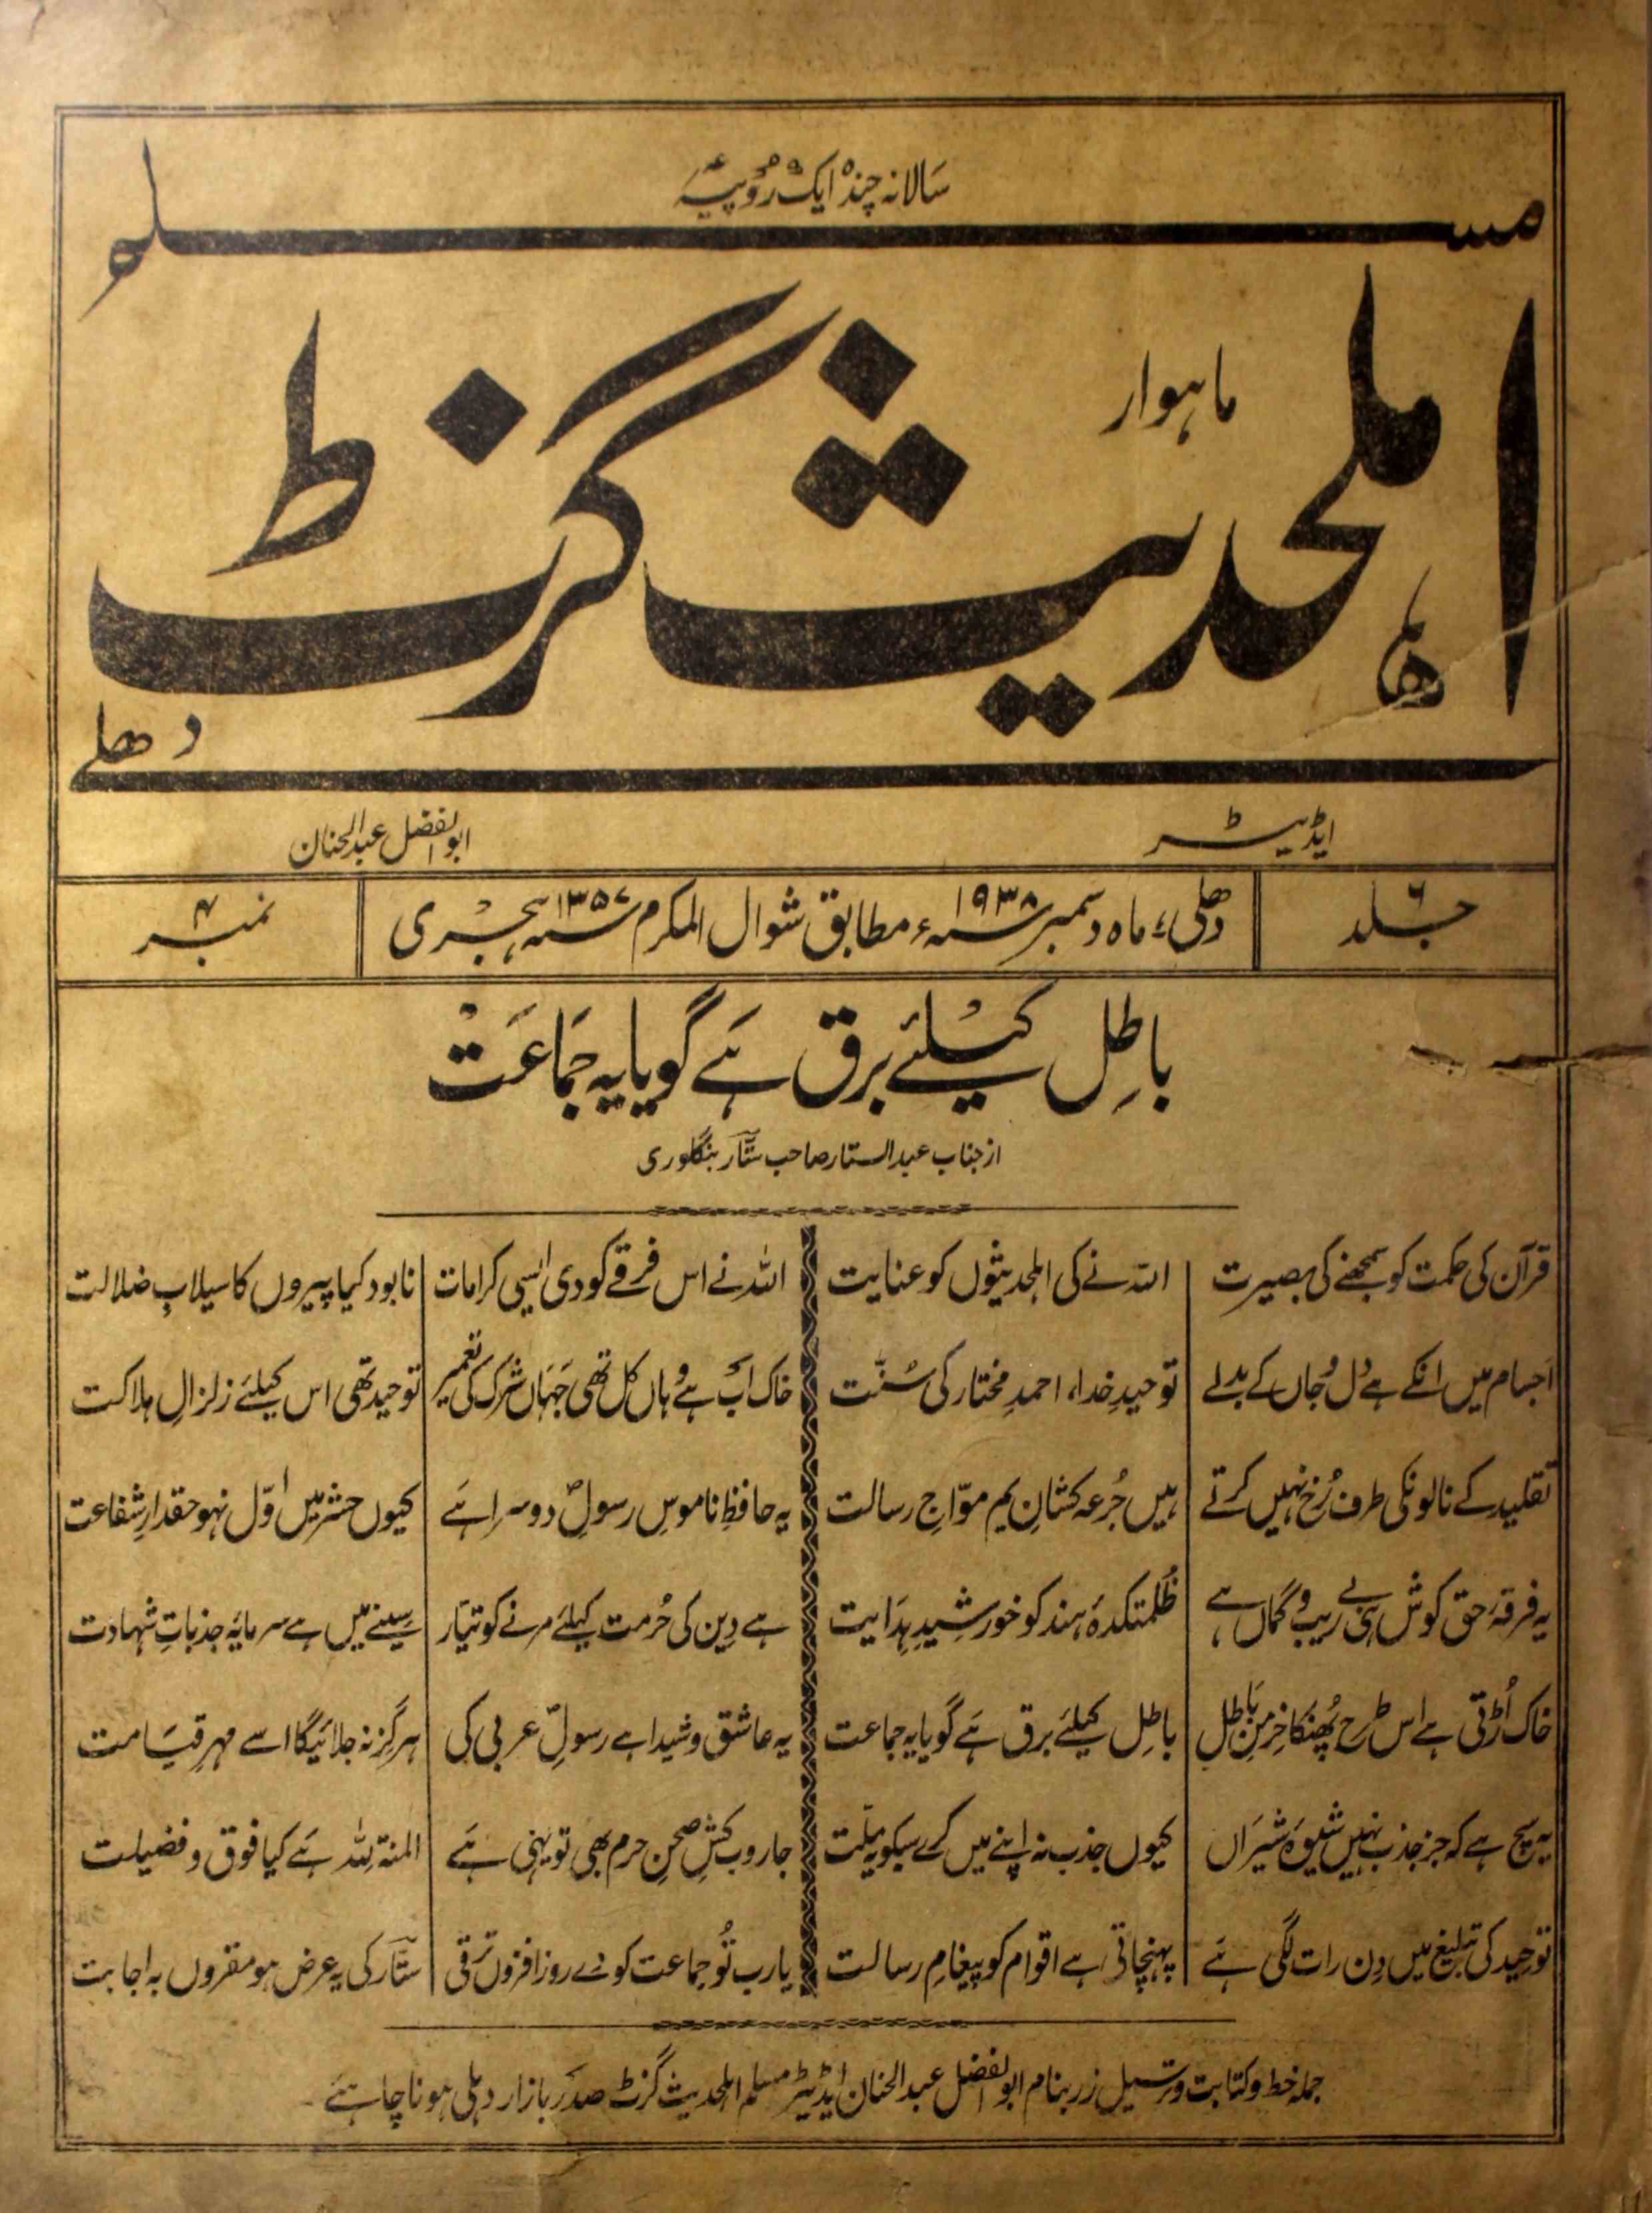 سالانہ چندہ ایک روپیہ
مسلم
ماہوار
اہلحدیث گزٹ
دھلی
ایڈیٹر
ابوالفضل عبدالحنان
جلد ۶
دھلی، ماہ دسمبر ۱۹۳۸ء مطابق شوال المکرم ۱۳۵۷ ہجری
نمبر ۴
باطل کیلئے برق ہے گویا یہ جماعت
از جناب عبدالستار صاحب ستار بنگلوری
قرآن کی حکمت کو سمجھنے کی بصیرت
اللہ نے کی اہلحدیثوں کو عنایت
اجسام میں انکے ہے دل و جاں کے بدلے
توحیدِ خدا، احمدِ مختار کی سنت
تقلید کے نالونکی طرف رُخ نہیں کرتے
ہیں جُرعہ کشانِ یمِ موّاجِ رسالت
یہ فرقۂ حق کوش ہی بے ریب و گماں ہے
ظُلمتکدۂ ہند کو خورشیدِ ہدایت
خاک اُڑتی ہے اس طرح پُھنکا خرمنِ باطل
باطل کیلئے برق ہے گویا یہ جماعت
یہ سچ ہے کہ جز جذب نہیں شیوۂ شیراں
کیوں جذب نہ اپنے میں کرے سبکو یہ ملّت
توحید کی تبلیغ میں دن رات لگی ہے
پہنچاتی ہے اقوام کو پیغامِ رسالت
اللہ نے اس فرقے کو دی ایسی کرامات
نابود کیا پیروں کا سیلابِ ضلالت
خاک اب ہے وہاں کل تھی جہاں شرک کی تعمیر
توحید تھی اس کیلئے زلزالِ ہلاکت
یہ حافظِ ناموسِ رسولِ دوسرا ہے
کیوں حشر میں اوّل نہو حقدارِ شفاعت
ہے دین کی حُرمت کیلئے مرنے کو تیار
سینے میں ہے سرمایۂ جذباتِ شہادت
یہ عاشق و شیدا ہے رسولِ عربی کی
ہرگز نہ جلائیگا اسے مہرِ قیامت
جاروب کشِ صحنِ حرم بھی تو یہی ہے
المنۃ للہ ہے کیا فوق و فضیلت
یارب تُو جماعت کو دے روز افزوں ترقی
ستار کی یہ عرض ہو مقروں بہ اجابت
جملہ خط و کتابت و ترسیل زر بنام ابوالفضل عبدالحنان ایڈیٹر مسلم اہلحدیث گزٹ صدر بازار دہلی ہونا چاہئے